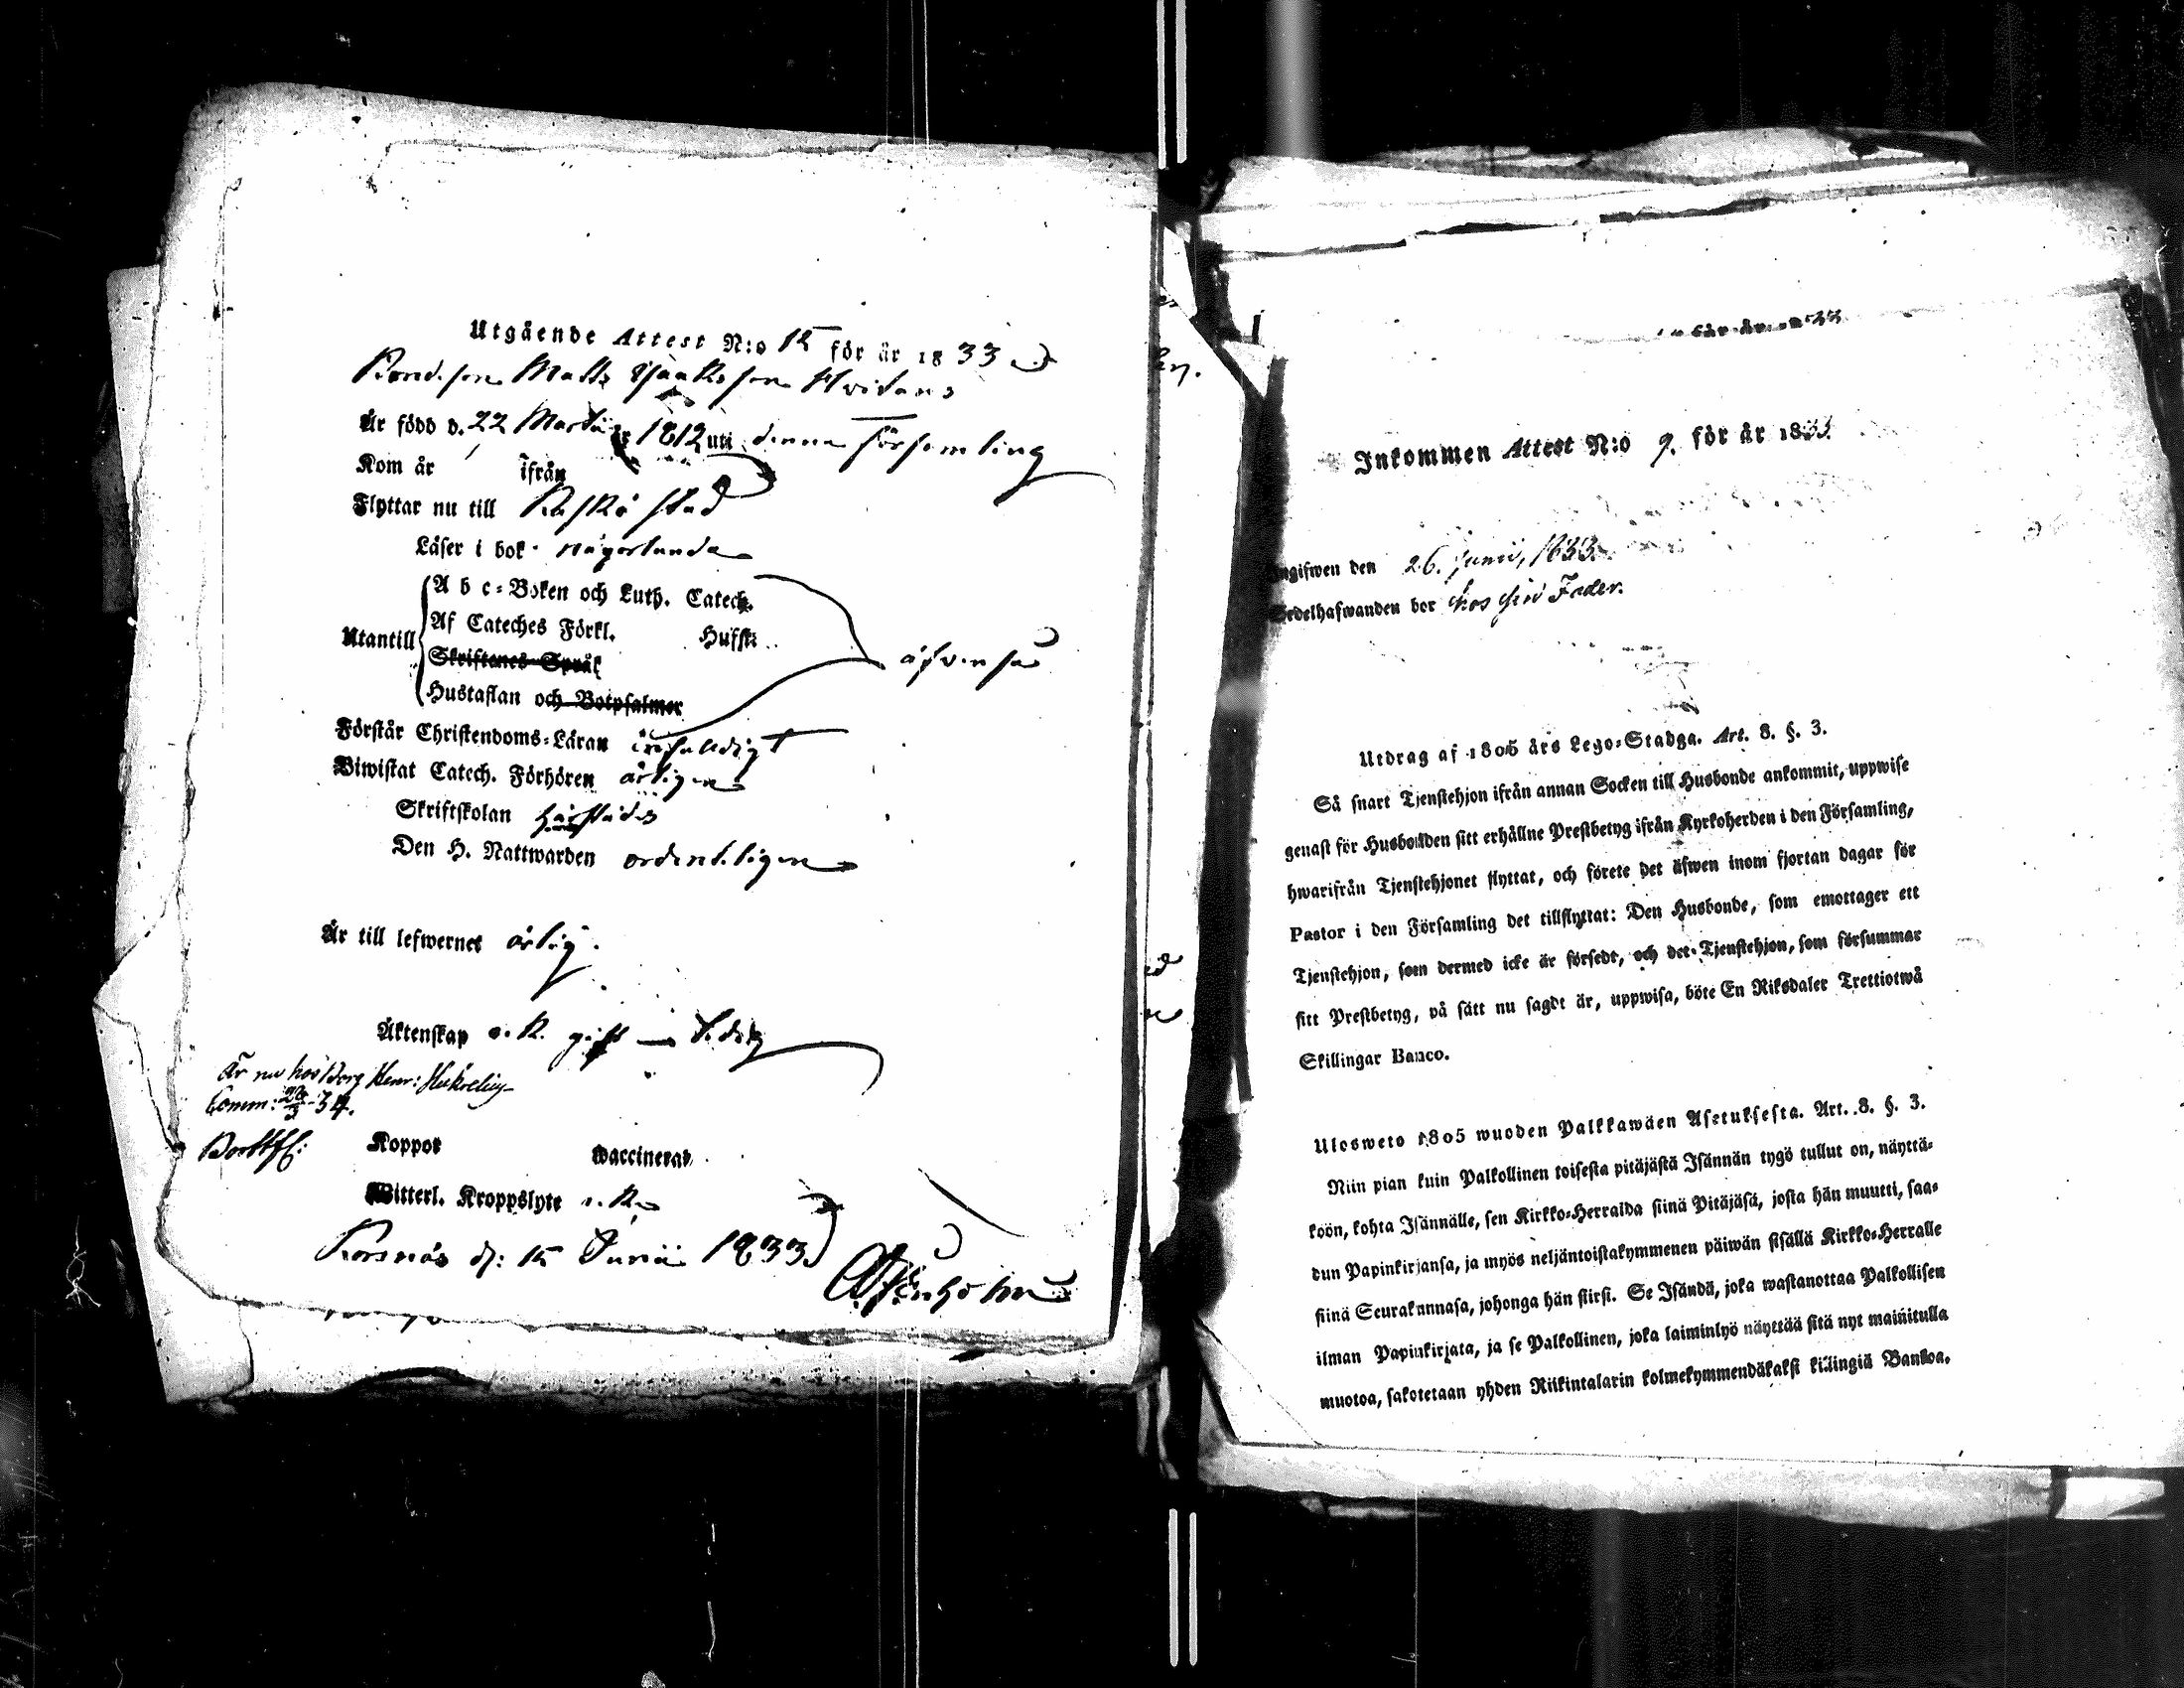 Utgående Attest N:o 15 för år 1833
Bondeson Matts Isaaksson Hvidans
Är född d. 22 Martii år 1812 uti denna Församling
Kom år ifrån
Flyttar nu till Kaskö stad
Läser i bok någorlunda
A b c-Boken och Luth. Catech.
Af Cateches Förkl. Husfl:
Utantill Skriftenes Språk
äfvenså
Hustaflan och Botpsalmer
Förstår Christendoms-Läran enfaldigt
Biwistat Catech. Förhören årligen
Skriftskolan härstädes
Den H. Nattwarden ordenteligen
Är till lefwernet ärlig.
Äktenskap o.k. gift — ledig
Är nu hos Borg Henr:
Comm: 28/3 34.
Koppor waccinerat
Witterl. Kroppslyte o.k.
Korsnäs d: 15 Junii 1833
för år 1833
Inkommen Attest N:o 9. för år 1833
Angifwen den 26. Junii, 1833.
Sedelhafwanden bor hos sin Fader.
Utdrag af 1805 års Lego-Stadga. Art. 8. §. 3.
Så snart Tjenstehjon ifrån annan Socken till Husbonde ankommit, uppwise
genast för Husbonden sitt erhållne Prestbetyg ifrån Kyrkoherden i den Församling,
hwarifrån Tjenstehjonet flyttat, och förete det äfwen inom fjortan dagar för
Pastor i den Församling det tillflyttat: Den Husbonde, som emottager ett
Tjenstehjon, som dermed icke är försedt, och det Tjenstehjon, som försummar
sitt Prestbetyg, på sätt nu sagdt är, uppwisa, böte En Riksdaler Trettiotwå
Skillingar Banco.
Ulosweto 1805 wuoden Palkkawäen Asetuksesta. Art. 8. §. 3.
Niin pian kuin Palkollinen toisesta pitäjästä Isännän tygö tullut on, näyttä-
köön, kohta Isännälle, sen Kirkko-Herralda siinä Pitäjäsä, josta hän muutti, saa-
dun Papinkirjansa, ja myös neljäntoistakymmenen päiwän sisällä Kirkko-Herralle
siinä Seurakunnasa, johonga hän siirsi. Se Isändä, joka wastanottaa Palkollisen
ilman Papinkirjata, ja se Palkollinen, joka laiminlyö näyttää sitä nyt mainitulla
muotoa, sakotetaan yhden Riikintalarin kolmekymmendäkaksi killingiä Bankoa.